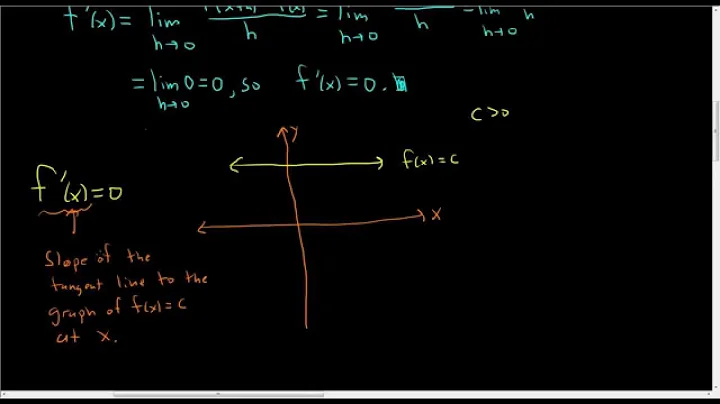 f'(x) = lim h→0 f(x+h) - f(x) / h = lim h→0 / h = lim h→0 h
= lim h→0 0 = 0, so f'(x) = 0.
c > 0
y
f(x) = c
f'(x) = 0
x
Slope of the
tangent line to the
graph of f(x) = c
at x.